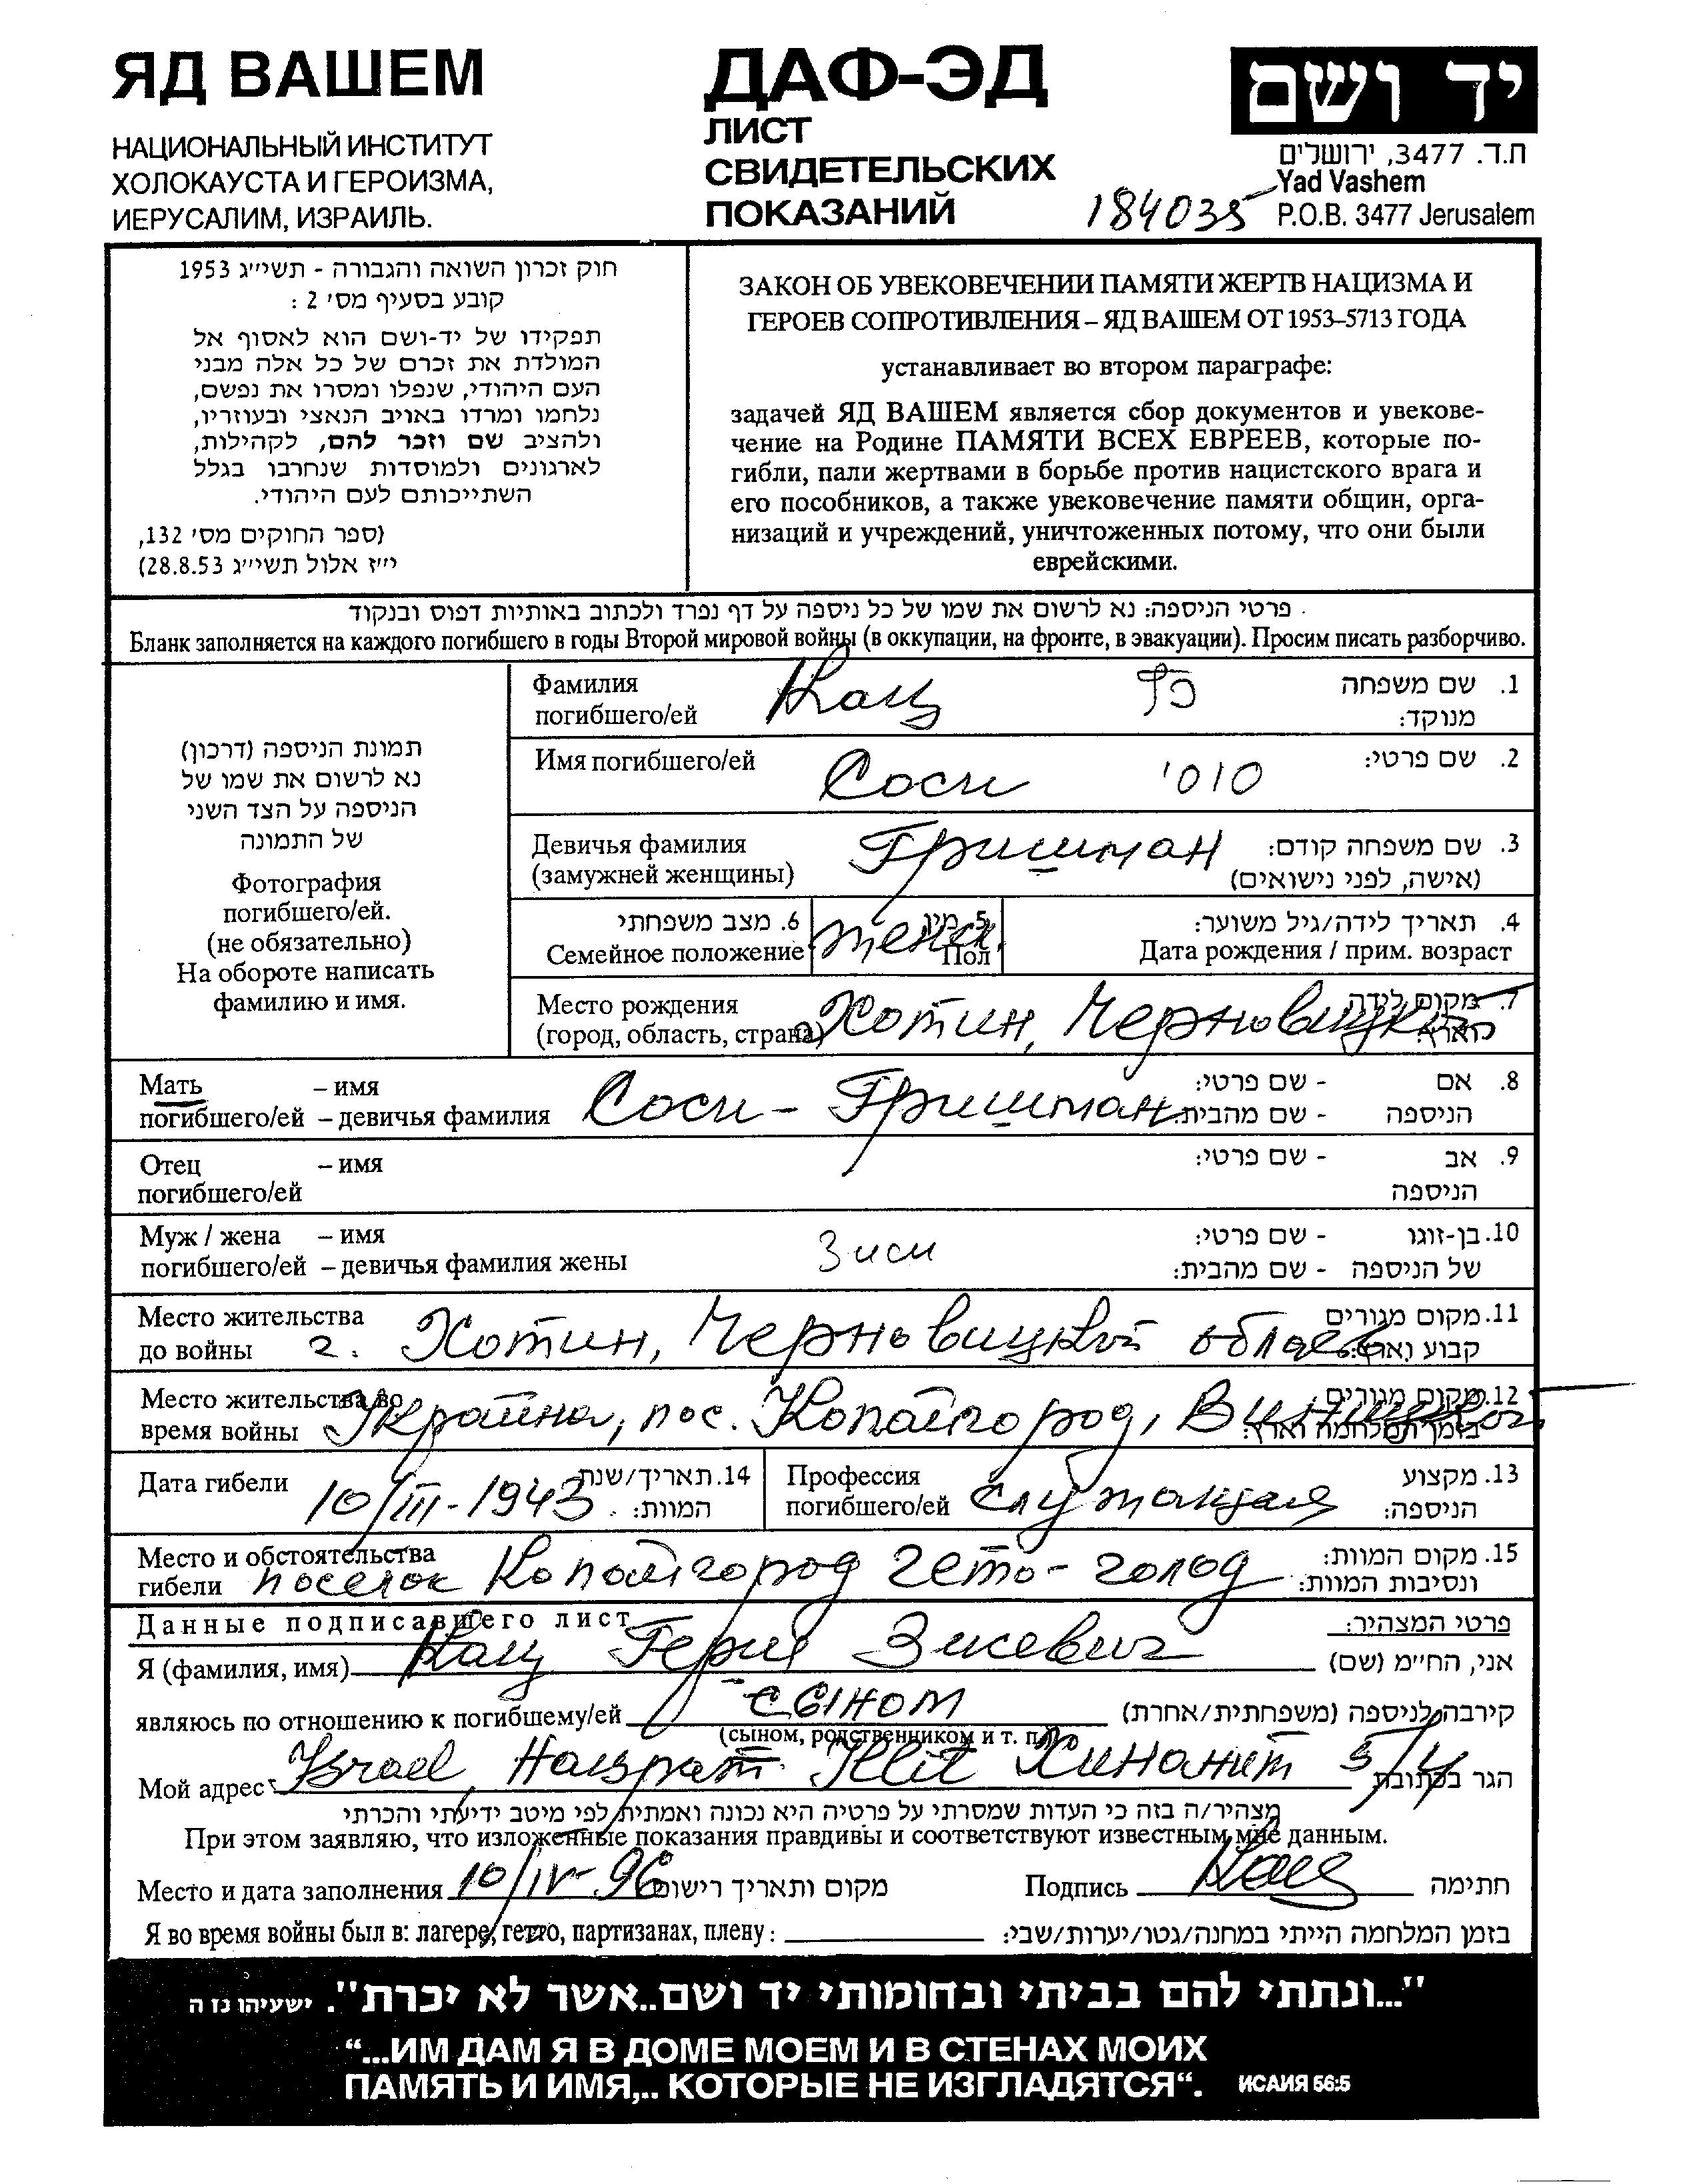 ЯД ВАШЕМ
НАЦИОНАЛЬНЫЙ ИНСТИТУТ
ХОЛОКАУСТА И ГЕРОИЗМА,
ИЕРУСАЛИМ, ИЗРАИЛЬ.
ДАФ-ЭД
ЛИСТ
СВИДЕТЕЛЬСКИХ
ПОКАЗАНИЙ
184035
יד ושם
ת.ד. 3477, ירושלים
Yad Vashem
P.O.B. 3477 Jerusalem
חוק זכרון השואה והגבורה - תשי״ג 1953
קובע בסעיף מס׳ 2 :
תפקידו של יד-ושם הוא לאסוף אל
המולדת את זכרם של כל אלה מבני
העם היהודי, שנפלו ומסרו את נפשם,
נלחמו ומרדו באויב הנאצי ובעוזריו,
ולהציב שם וזכר להם, לקהילות,
לארגונים ולמוסדות שנחרבו בגלל
השתייכותם לעם היהודי.
(ספר החוקים מס׳ 132,
י״ז אלול תשי״ג 28.8.53)
ЗАКОН ОБ УВЕКОВЕЧЕНИИ ПАМЯТИ ЖЕРТВ НАЦИЗМА И
ГЕРОЕВ СОПРОТИВЛЕНИЯ – ЯД ВАШЕМ ОТ 1953–5713 ГОДА
устанавливает во втором параграфе:
задачей ЯД ВАШЕМ является сбор документов и увекове-
чение на Родине ПАМЯТИ ВСЕХ ЕВРЕЕВ, которые по-
гибли, пали жертвами в борьбе против нацистского врага и
его пособников, а также увековечение памяти общин, орга-
низаций и учреждений, уничтоженных потому, что они были
еврейскими.
פרטי הניספה: נא לרשום את שמו של כל ניספה על דף נפרד ולכתוב באותיות דפוס ובנקוד
Бланк заполняется на каждого погибшего в годы Второй мировой войны (в оккупации, на фронте, в эвакуации). Просим писать разборчиво.
תמונת הניספה (דרכון)
נא לרשום את שמו של
הניספה על הצד השני
של התמונה
Фотография
погибшего/ей.
(не обязательно)
На обороте написать
фамилию и имя.
Фамилия Кац כץ 1. שם משפחה
погибшего/ей מנוקד:
Имя погибшего/ей Соси סוסי 2. שם פרטי:
Девичья фамилия Гришман 3. שם משפחה קודם:
(замужней женщины) (אישה, לפני נישואים)
6. מצב משפחתי 5. מין 4. תאריך לידה/גיל משוער:
Семейное положение жена Пол Дата рождения / прим. возраст
Место рождения 7. מקום לידה
(город, область, страна) Хотин, Черновицкой
Мать – имя Соси - Гришман 8. אם - שם פרטי:
погибшего/ей – девичья фамилия הניספה - שם מהבית:
Отец – имя 9. אב - שם פרטי:
погибшего/ей הניספה
Муж / жена – имя Зиси 10. בן-זוגו - שם פרטי:
погибшего/ей – девичья фамилия жены של הניספה - שם מהבית:
Место жительства 11. מקום מגורים
до войны г. Хотин, Черновицкой קבוע
Место жительства во 12. מקום מגורים
время войны Украина, пос. Копайгород,
Дата гибели 10/III-1943 14. תאריך/שנת המוות:
Профессия погибшего/ей служащая 13. מקצוע הניספה:
Место и обстоятельства 15. מקום המוות:
гибели поселок Копайгород гето - голод ונסיבות המוות:
Данные подписавшего лист פרטי המצהיר:
Я (фамилия, имя) Кац Герш Зисевич אני, החי״מ (שם)
являюсь по отношению к погибшему/ей сыном קירבה לניספה (משפחתית/אחרת)
(сыном, родственником и т. п.)
Мой адрес Israel, Нацрат Illit Хинанит 5/4 הגר בכתובת
מצהיר/ה בזה כי העדות שמסרתי על פרטיה היא נכונה ואמתית לפי מיטב ידיעתי והכרתי
При этом заявляю, что изложенные показания правдивы и соответствуют известным мне данным.
Место и дата заполнения 10/IV-96 מקום ותאריך רישום Подпись Кац חתימה
Я во время войны был в: лагере, гетто, партизанах, плену : בזמן המלחמה הייתי במחנה/גטו/יערות/שבי:
"...ונתתי להם בביתי ובחומותי יד ושם..אשר לא יכרת". ישעיהו נז ה
“...ИМ ДАМ Я В ДОМЕ МОЕМ И В СТЕНАХ МОИХ
ПАМЯТЬ И ИМЯ,.. КОТОРЫЕ НЕ ИЗГЛАДЯТСЯ“. ИСАИЯ 56:5